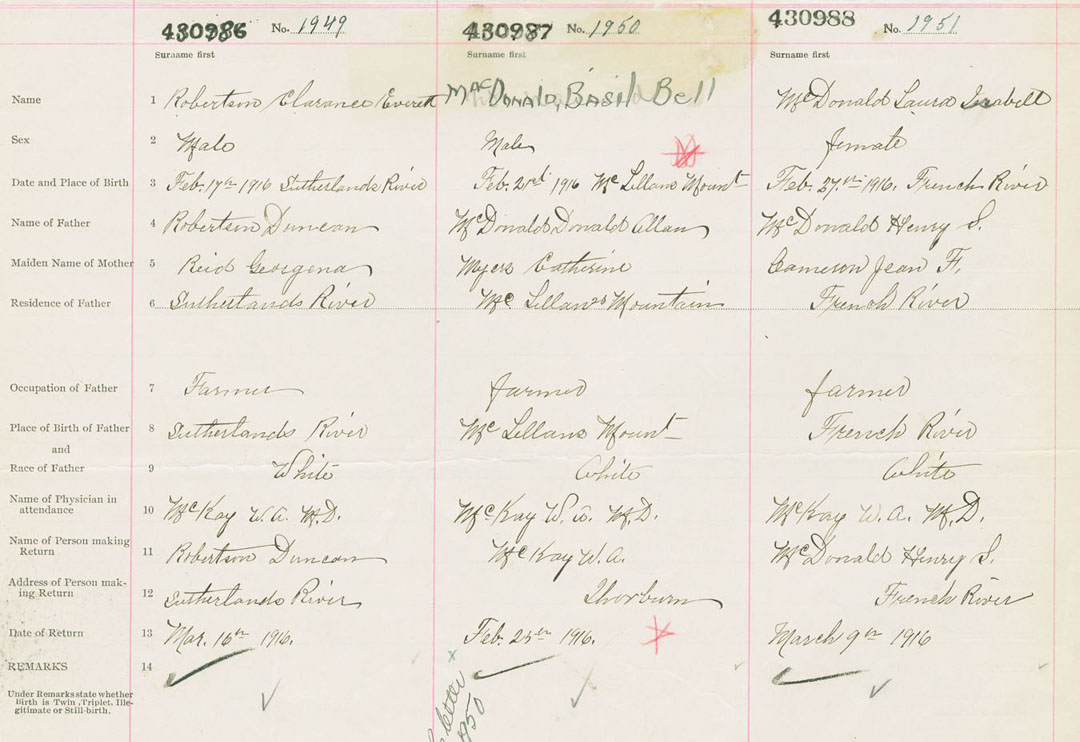 430986 No. 1949 430987 No. 1950 430988 No. 1951
Surname first Surname first Surname first
Name 1 Robertson Clarance Everett MacDonald, Basil Bell McDonald Laura Isabell
Sex 2 Male Male female
Date and Place of Birth 3 Feb. 17th 1916 Sutherlands River Feb. 1916 McLellans Mount Feb. 27th 1916. French River
Name of Father 4 Robertson Duncan McDonald Donald Allan McDonald Henry S.
Maiden Name of Mother 5 Reid Georgena Myers Catherine Cameron Jean F.
Residence of Father 6 Sutherlands River McLellans Mountain French River
Occupation of Father 7 Farmer farmer farmer
Place of Birth of Father 8 Sutherlands River McLellans Mount French River
and
Race of Father 9 White White White
Name of Physician in
attendance 10 McKay W.A. M.D. McKay W. M.D. McKay W.A. M.D.
Name of Person making
Return 11 Robertson Duncan McKay W.A. McDonald Henry S.
Address of Person mak-
ing Return 12 Sutherlands River Thorburn French River
Date of Return 13 Mar. 16th 1916. Feb. 1916. March 9th 1916
REMARKS 14
Under Remarks state whether
Birth is Twin, Triplet, Ille-
gitimate or Still-birth.
letter
1950